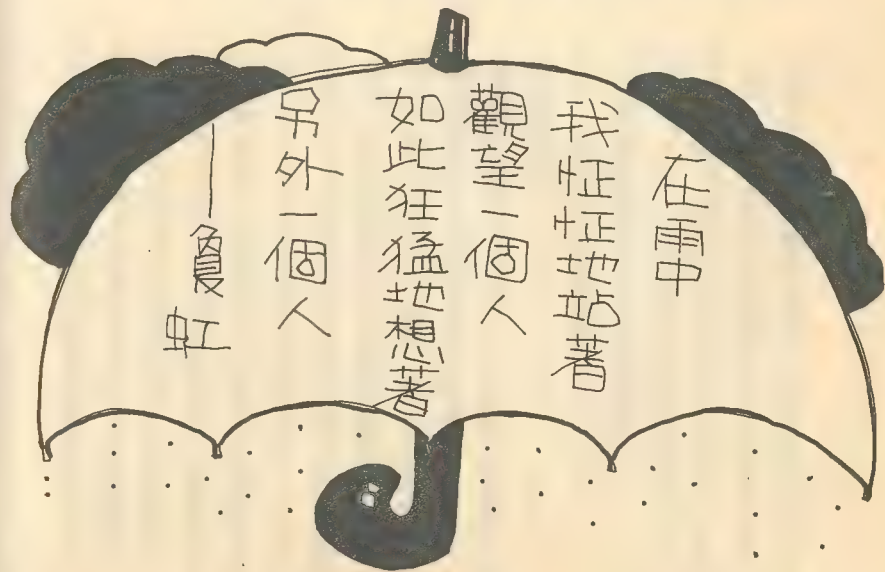 在雨中
我怔怔地站著
觀望一個人
如此狂猛地想著
另外一個人
──敻虹